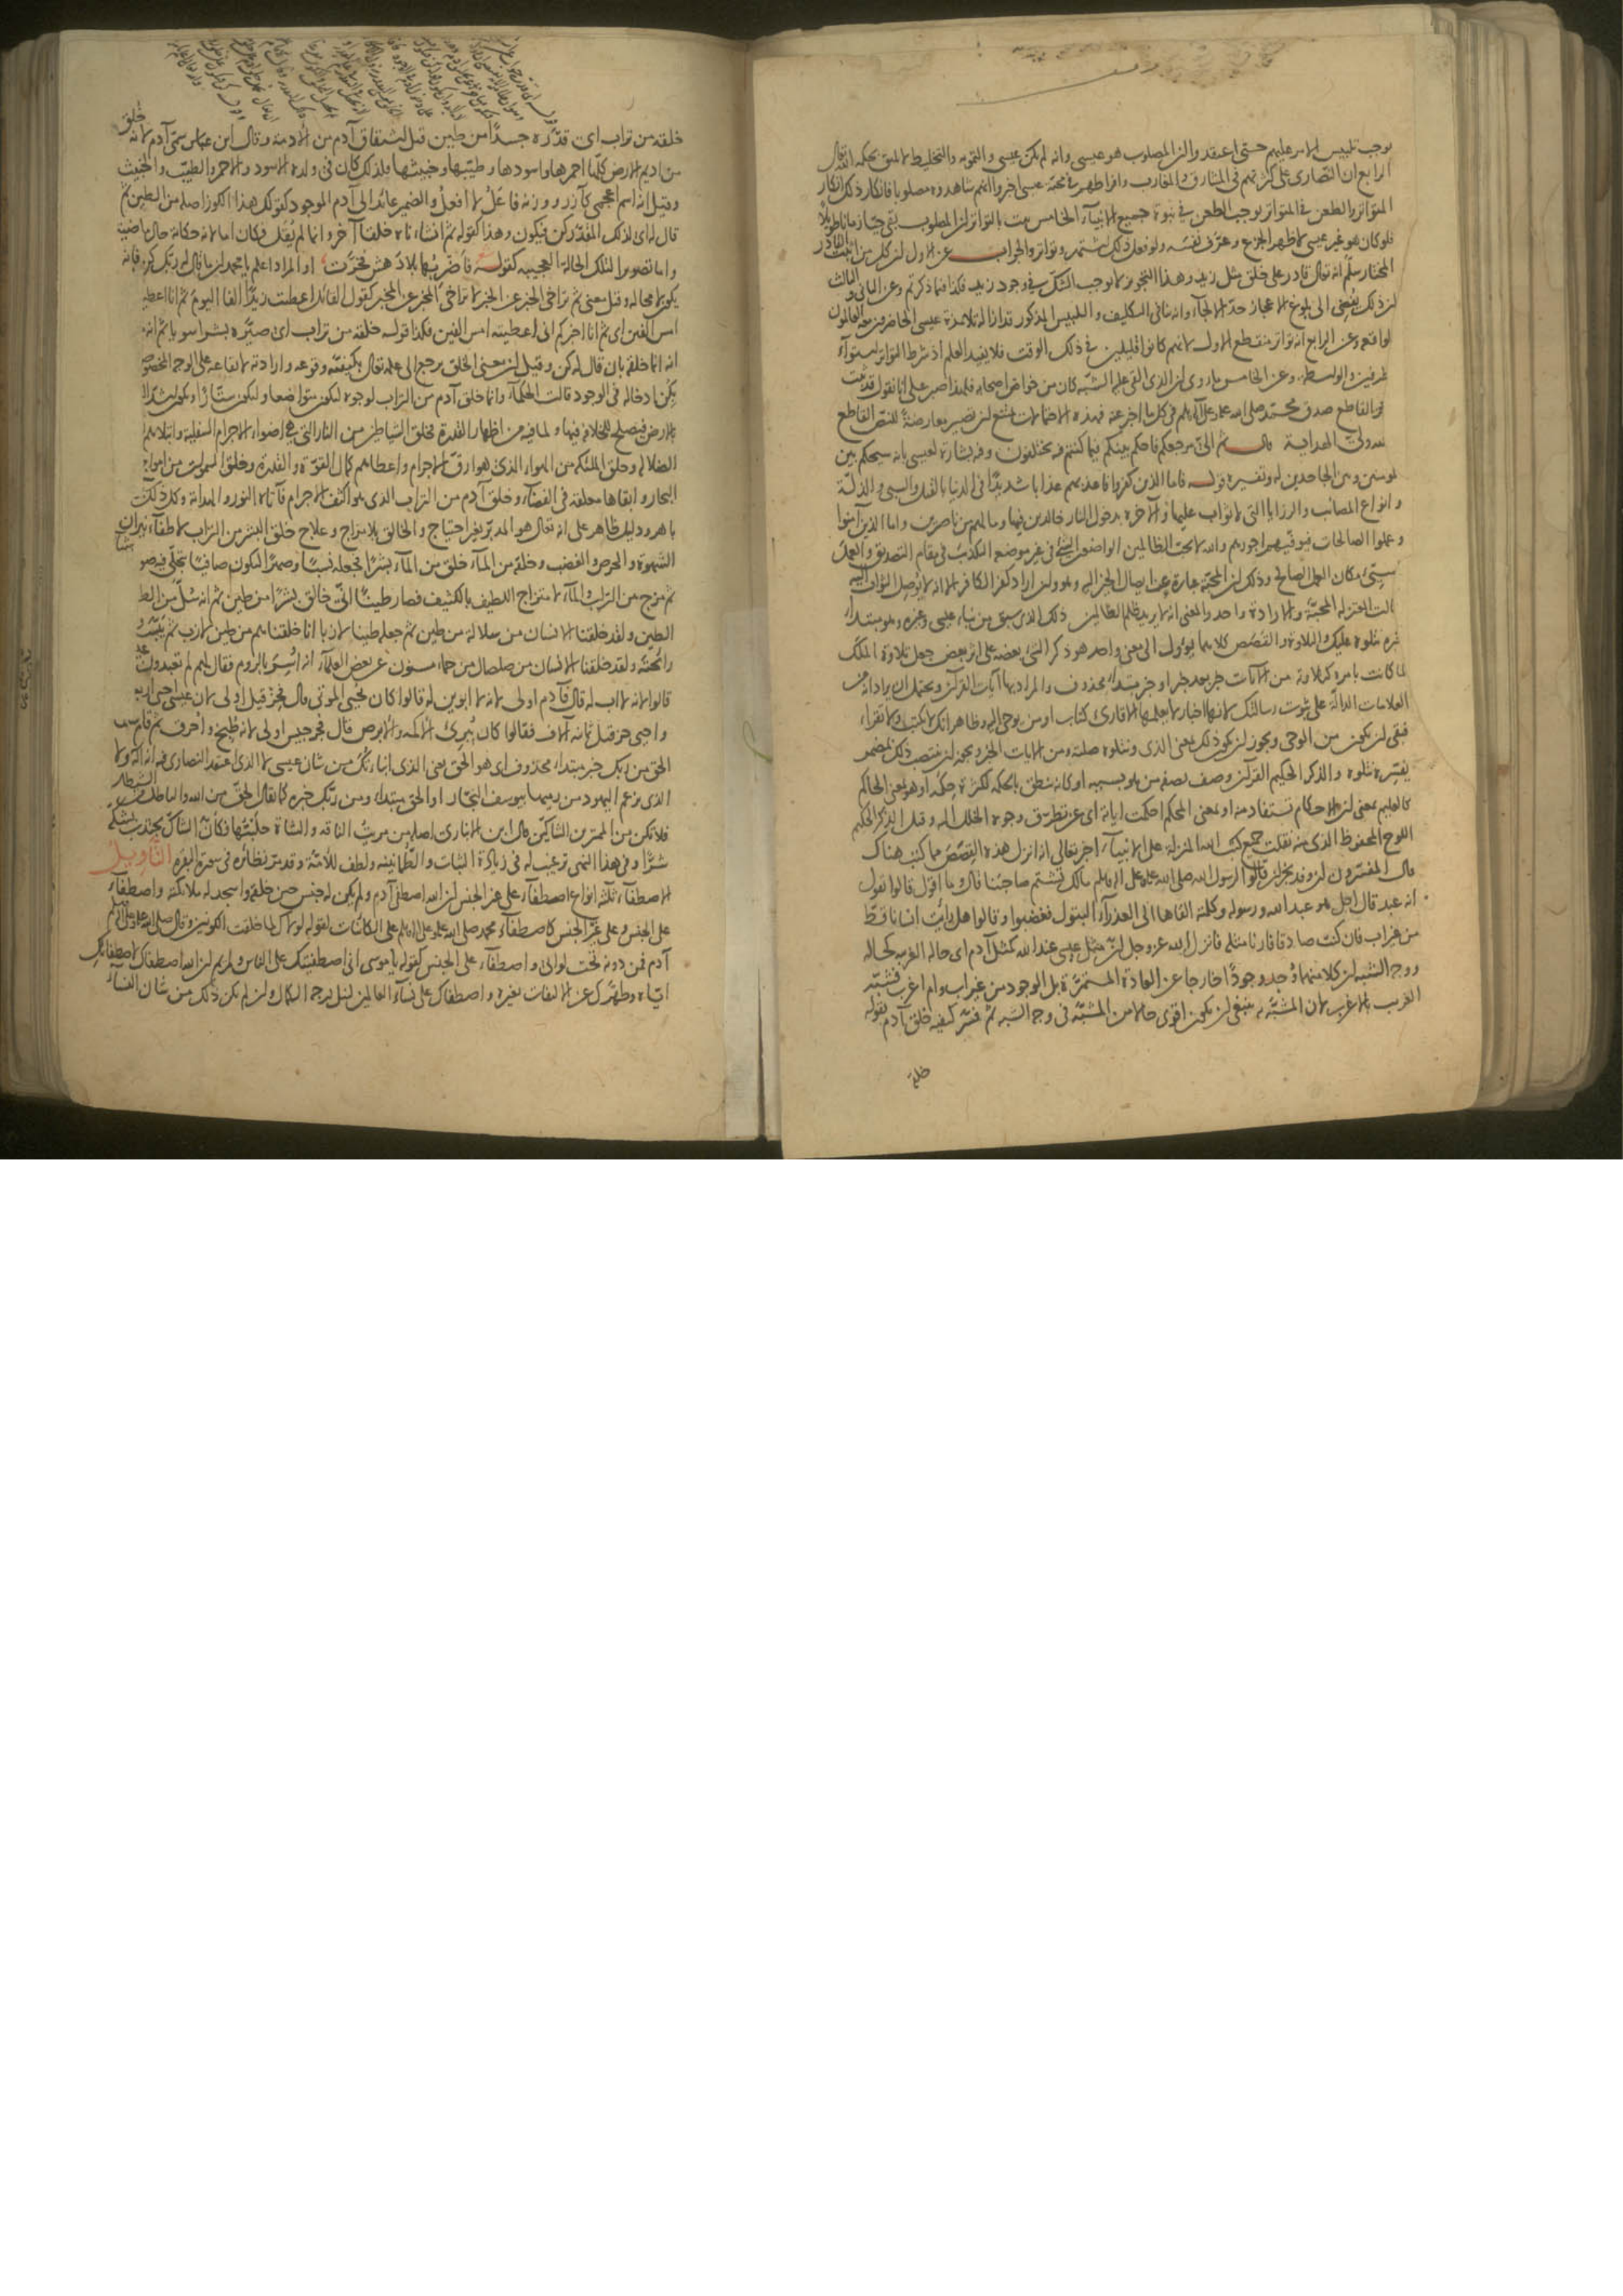 يوجب تلبيس الامر عليهم حتى اعتقدوا ان المصلوب هو عيسى وانه لم يكن عيسى والتمويه والتخليط لا يليق بحكمة الله تعالى
الرابع ان النصارى على كثرتهم في المشارق والمغارب وافراطهم في محبة عيسى اخبروا انهم شاهدوه مصلوبا فانكار ذلك انكار
المتواتر والطعن في المتواتر يوجب الطعن في نبوة جميع الانبياء الخامس ثبت بالتواتر ان المصلوب بقي حيا زمانا طويلا
فلو كان هو غير عيسى لاظهر الجزع وعرف نفسه ولو فعل ذلك لاشتهر وتواتر والجواب عن الاول ان كل من اثبت القادر
المختار سلم انه تعالى قادر على خلق مثل زيد وهذا التجويز لا يوجب الشك في وجود زيد فكذا فيما ذكرتم وعن الثاني والثالث
ان ذلك يفضي الى بلوغ الاعجاز حد الالجاء وانه ينافي التكليف والتلبيس المذكور قد ازاله تلامذة عيسى الحاضرون معه العالمون
لواقعة وعن الرابع انه تواتر منقطع الاول لانهم كانوا قليلين في ذلك الوقت فلا يفيد العلم اذ شرط التواتر استواء
طرفين والواسطة وعن الخامس ما روى ان الذي القي عليه الشبه كان من خواص اصحابه فلهذا صبر على انا نقول قد ثبت
القاطع صدق محمد صلى الله عليه وعلى آله وسلم في كل ما اخبر عنه فهذه الاحتمالات يمتنع ان تصير معارضة للنص القاطع
ولي الهداية قال ثم الي مرجعكم فاحكم بينكم فيما كنتم فيه تختلفون وفيه بشارة لعيسى بانه سيحكم بين
المومنين وبين الجاحدين له وتفسيره قوله فاما الذين كفروا فاعذبهم عذابا شديدا في الدنيا بالقتل والسبي والذلة
وانواع المصائب والرزايا التي لا ثواب عليها والآخرة بدخول النار خالدين فيها وما لهم من ناصرين واما الذين آمنوا
وعملوا الصالحات فيوفيهم اجورهم والله لا يحب الظالمين الواضعين الشيء في غير موضعه التكذيب في مقام التصديق والعمل
السيئ مكان العمل الصالح وذلك ان المحبة عبارة عن ايصال الخير اليه وهو وان اراد كفر الكافر الا انه لا يوصل الثواب اليه
قالت المعتزلة المحبة والارادة واحد والمعنى انه لا يريد ظلم الظالمين ذلك الذي سبق من نباء عيسى وغيره وهو مبتداء
خبره نتلوه عليك والتلاوة والقصص كلاهما يؤول الى معنى واحد هو ذكر الشيء بعضه على اثر بعض جعل تلاوة الملك
لما كانت بامره كتلاوته من الآيات خبر بعد خبر او خبر مبتداء محذوف والمراد بها آيات القرآن ويحتمل ان يراد انه من
العلامات الدالة على ثبوت رسالتك لانها اخبار لا يعلمها الا قارئ كتاب او من يوحى اليه وظاهر انك لا تكتب ولا تقراء
فبقي ان يكون من الوحي ويجوز ان يكون ذلك بمعنى الذي ونتلوه صلته ومن الآيات الخبر ويجوز ان ينتصب ذلك بمضمر
يفسره نتلوه والذكر الحكيم القرآن وصف بصفة من هو بسببه او كانه ينطق بالحكمة لكثرة حكمه او هو بمعنى الحاكم
كالعليم بمعنى ان الاحكام تستفاد منه او بمعنى المحكم احكمت آياته اي عن تطرق وجوه الخلل اليه وقيل الذكر الحكيم
اللوح المحفوظ الذي منه نقلت جميع كتب الله المنزلة على الانبياء اخبر تعالى انه انزل هذه القصص مما كتب هناك
قال المفسرون ان وفد نجران قالوا لرسول الله صلى الله عليه وعلى آله وسلم مالك تشتم صاحبنا قال وما اقول قالوا تقول
انه عبد قال اجل هو عبد الله ورسوله وكلمته القاها الى العذراء البتول فغضبوا وقالوا هل رايت انسانا قط
من غير اب فان كنت صادقا فارنا مثله فانزل الله عز وجل ان مثل عيسى عند الله كمثل آدم اي حاله الغريبة كحاله
ووجه الشبه ان كلا منهما وجد وجودا خارجا عن العادة المستمرة بل الوجود من غير اب وام اغرب فشبه
الغريب بالاغرب لان المشبه به ينبغي ان يكون اقوى حالا من المشبه في وجه الشبه ثم فسر كيفية خلق آدم بقوله
خلقه
خلقه من تراب اي قدره جسدا من طين قيل اشتقاق آدم من الادمة وقال ابن عباس سمي آدم لانه خلق
من اديم الارض كلها احمرها واسودها وطيبها وخبيثها فلذلك كان في ولده الاسود والاحمر والطيب والخبيث
وقيل انه اسم اعجمي كآزر ووزنه فاعل لا افعل والضمير عائد الى آدم الموجود كقولك هذا الكوز اصله من الطين ثم
قال له اي لذلك المقدر كن فيكون وهذا كقوله ثم انشاناه خلقا آخر وانما لم يقل فكان اما لانه حكاية حال ماضية
واما تصوير لتلك الحالة العجيبة كقوله فاضربها بلا دهش فخرت او المراد اعلم يا محمد ان ما قال له ربك كن فانه
يكون لا محالة وقيل معنى ثم تراخي الخبر عن الخبر لا تراخي المخبر عن المخبر كقول القائل اعطيت زيدا الفا اليوم ثم انا اعطيته
امس الفين اي ثم انا اخبركم اني اعطيته امس الفين فكذا قوله خلقه من تراب اي صيره بشرا سويا ثم انه
انه انما خلقه بان قال له كن وقيل ان معنى الخلق يرجع الى علمه تعالى بكيفيته وقوعه وارادته لايقاعه على الوجه المخصوص
يكن ادخاله في الوجود قالت الحكماء وانما خلق آدم من التراب لوجوه ليكون متواضعا وليكون ستارا وليكون اشد
بالارض فيصلح للخلافة فيها ولما فيه من اظهار القدرة فخلق الشياطين من النار التي هي اضواء الاجرام السفلية وابتلاهم
الضلالة وخلق الملئكة من الهواء الذي هو ارق الاجرام واعطاهم كمال القوة والقدرة وخلق السموات من امواج
البحار وابقاها معلقة في الفضاء وخلق آدم من التراب الذي هو اكثف الاجرام فآتاه النور والهداية وكل ذلك
باهر ودليل ظاهر على انه تعالى هو المدبر بغير احتياج والخالق بلا مزاج وعلاج خلق البشر من التراب لاطفاء نيران
الشهوة والحرص والغضب وخلقه من الماء خلق من الماء بشرا فجعله نسبا وصهرا ليكون صافيا تجلى فيه صور
ثم مزج من التراب والماء لامتزاج اللطيف بالكثيف فصار طينا اني خالق بشرا من طين ثم انه سل من الطين
الطين ولقد خلقنا الانسان من سلالة من طين ثم جعله طينا لازبا انا خلقناهم من طين لازب ثم
رائحته ولقد خلقنا الانسان من صلصال من حماء مسنون عن بعض العلماء انه اسر بالروم فقال لهم لم تعبدون
قالوا لانه لا اب له قال فآدم اولى لانه لا ابوين له قالوا كان يحيي الموتى قال فحزقيل اولى لان عيسى احيى اربعة
واحيى حزقيل ثمانية آلاف فقالوا كان يبرئ الاكمه والابرص قال فجرجيس اولى لانه طبخ واحرق ثم قام
الحق من ربك خبر مبتداء محذوف اي هو الحق يعني الذي انباءتك من شان عيسى لا الذي اعتقد النصارى فيه انه اله ولا
الذي يزعم اليهود من رميها بيوسف النجار او الحق مبتداء ومن ربك خبره كما يقال الحق من الله والباطل من الشيطان
فلا تكن من الممترين الشاكين قال ابن الانباري اصله من مريت الناقة والشاة حلبتها فكان الشاك يجتذب بشكه
شرا وفي هذا النهي ترغيب له في زيادة الثبات والطمانينة ولطف للامة وقد مر نظائره في سورة البقرة التأويل
الاصطفاء ثلثة انواع اصطفاء على غير الجنس ان الله اصطفى آدم ولم يكن له جنس حين خلقه واسجد له ملائكته واصطفاء
على الجنس وعلى غير الجنس كاصطفاء محمد صلى الله عليه وعلى آله وسلم على الكائنات لقوله لولاك لما خلقت الكونين وقال صلى الله عليه وعلى آله وسلم
آدم فمن دونه تحت لوائي واصطفاء على الجنس كقوله يا موسى اني اصطفيتك على الناس ولمريم ان الله اصطفاك لاصطفائك
اياه وطهرك عن الالتفات لغيره واصطفاك على نساء العالمين لنيل درجة الكمال وان لم يكن ذلك من شان النساء